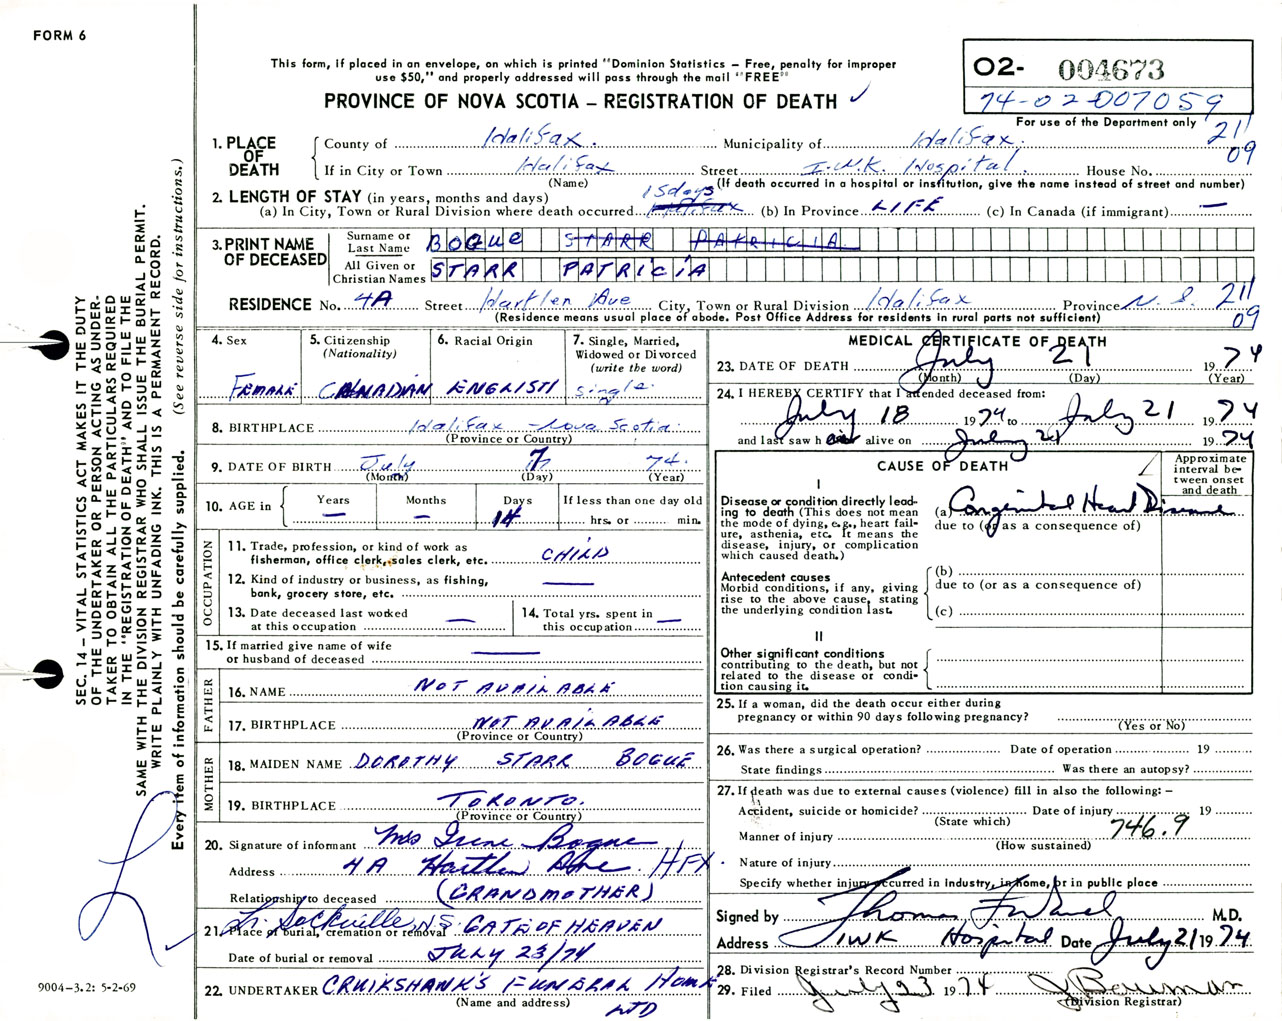 FORM 6
This form, if placed in an envelope, on which is printed "Dominion Statistics – Free, penalty for improper
use $50," and properly addressed will pass through the mail "FREE"
PROVINCE OF NOVA SCOTIA – REGISTRATION OF DEATH ✓
O2- 004673
74-02-007059
For use of the Department only
211
09
1. PLACE OF DEATH
County of Halifax. Municipality of Halifax.
If in City or Town Halifax Street I.W.K. Hospital. House No.
(Name) (If death occurred in a hospital or institution, give the name instead of street and number)
2. LENGTH OF STAY (in years, months and days)
(a) In City, Town or Rural Division where death occurred 15 days Halifax (b) In Province LIFE (c) In Canada (if immigrant) —
3. PRINT NAME OF DECEASED
Surname or Last Name BOGUE STARR PATRICIA
All Given or Christian Names STARR PATRICIA
RESIDENCE No. 4A Street Hartlen Ave City, Town or Rural Division Halifax Province N.S. 211
09
(Residence means usual place of abode. Post Office Address for residents in rural parts not sufficient)
4. Sex
FEMALE
5. Citizenship
(Nationality)
CANADIAN
6. Racial Origin
ENGLISH
7. Single, Married,
Widowed or Divorced
(write the word)
single.
8. BIRTHPLACE Halifax – Nova Scotia.
(Province or Country)
9. DATE OF BIRTH July 7 74.
(Month) (Day) (Year)
10. AGE in Years — Months — Days 14 If less than one day old
hrs. or min.
OCCUPATION
11. Trade, profession, or kind of work as
fisherman, office clerk, sales clerk, etc. CHILD
12. Kind of industry or business, as fishing,
bank, grocery store, etc. —
13. Date deceased last worked
at this occupation —
14. Total yrs. spent in
this occupation —
15. If married give name of wife
or husband of deceased —
FATHER
16. NAME NOT AVAILABLE
17. BIRTHPLACE NOT AVAILABLE
(Province or Country)
MOTHER
18. MAIDEN NAME DOROTHY STARR BOGUE
19. BIRTHPLACE TORONTO.
(Province or Country)
20. Signature of informant Mrs Irene Bogue
Address 4A Hartlen Ave HFX.
Relationship to deceased (GRANDMOTHER)
21. Place of burial, cremation or removal Lr. Sackville, N.S. GATE OF HEAVEN
Date of burial or removal JULY 23/74
22. UNDERTAKER CRUIKSHANK'S FUNERAL HOME
(Name and address) LTD
MEDICAL CERTIFICATE OF DEATH
23. DATE OF DEATH July 21 1974
(Month) (Day) (Year)
24. I HEREBY CERTIFY that I attended deceased from:
July 18 1974 to July 21 1974
and last saw h alive on July 21 1974
CAUSE OF DEATH
Approximate
interval be-
tween onset
and death
I
Disease or condition directly lead-
ing to death (This does not mean
the mode of dying, e.g., heart fail-
ure, asthenia, etc. It means the
disease, injury, or complication
which caused death.)
(a) Congenital Heart Disease
due to (or as a consequence of)
Antecedent causes
Morbid conditions, if any, giving
rise to the above cause, stating
the underlying condition last.
(b)
due to (or as a consequence of)
(c)
II
Other significant conditions
contributing to the death, but not
related to the disease or condi-
tion causing it.
25. If a woman, did the death occur either during
pregnancy or within 90 days following pregnancy?
(Yes or No)
26. Was there a surgical operation? Date of operation 19
State findings Was there an autopsy?
27. If death was due to external causes (violence) fill in also the following: –
Accident, suicide or homicide? Date of injury 19
(State which)
746.9
Manner of injury
(How sustained)
Nature of injury
Specify whether injury occurred in Industry, in home, or in public place
Signed by Thomas M.D.
Address IWK Hospital Date July 21 1974
28. Division Registrar's Record Number
29. Filed July 23 1974 J Bauman
(Division Registrar)
SEC. 14 – VITAL STATISTICS ACT MAKES IT THE DUTY
OF THE UNDERTAKER OR PERSON ACTING AS UNDER-
TAKER TO OBTAIN ALL THE PARTICULARS REQUIRED
IN THE "REGISTRATION OF DEATH" AND TO FILE THE
SAME WITH THE DIVISION REGISTRAR WHO SHALL ISSUE THE BURIAL PERMIT.
WRITE PLAINLY WITH UNFADING INK. THIS IS A PERMANENT RECORD.
Every item of information should be carefully supplied. (See reverse side for instructions.)
9004-3.2: 5-2-69